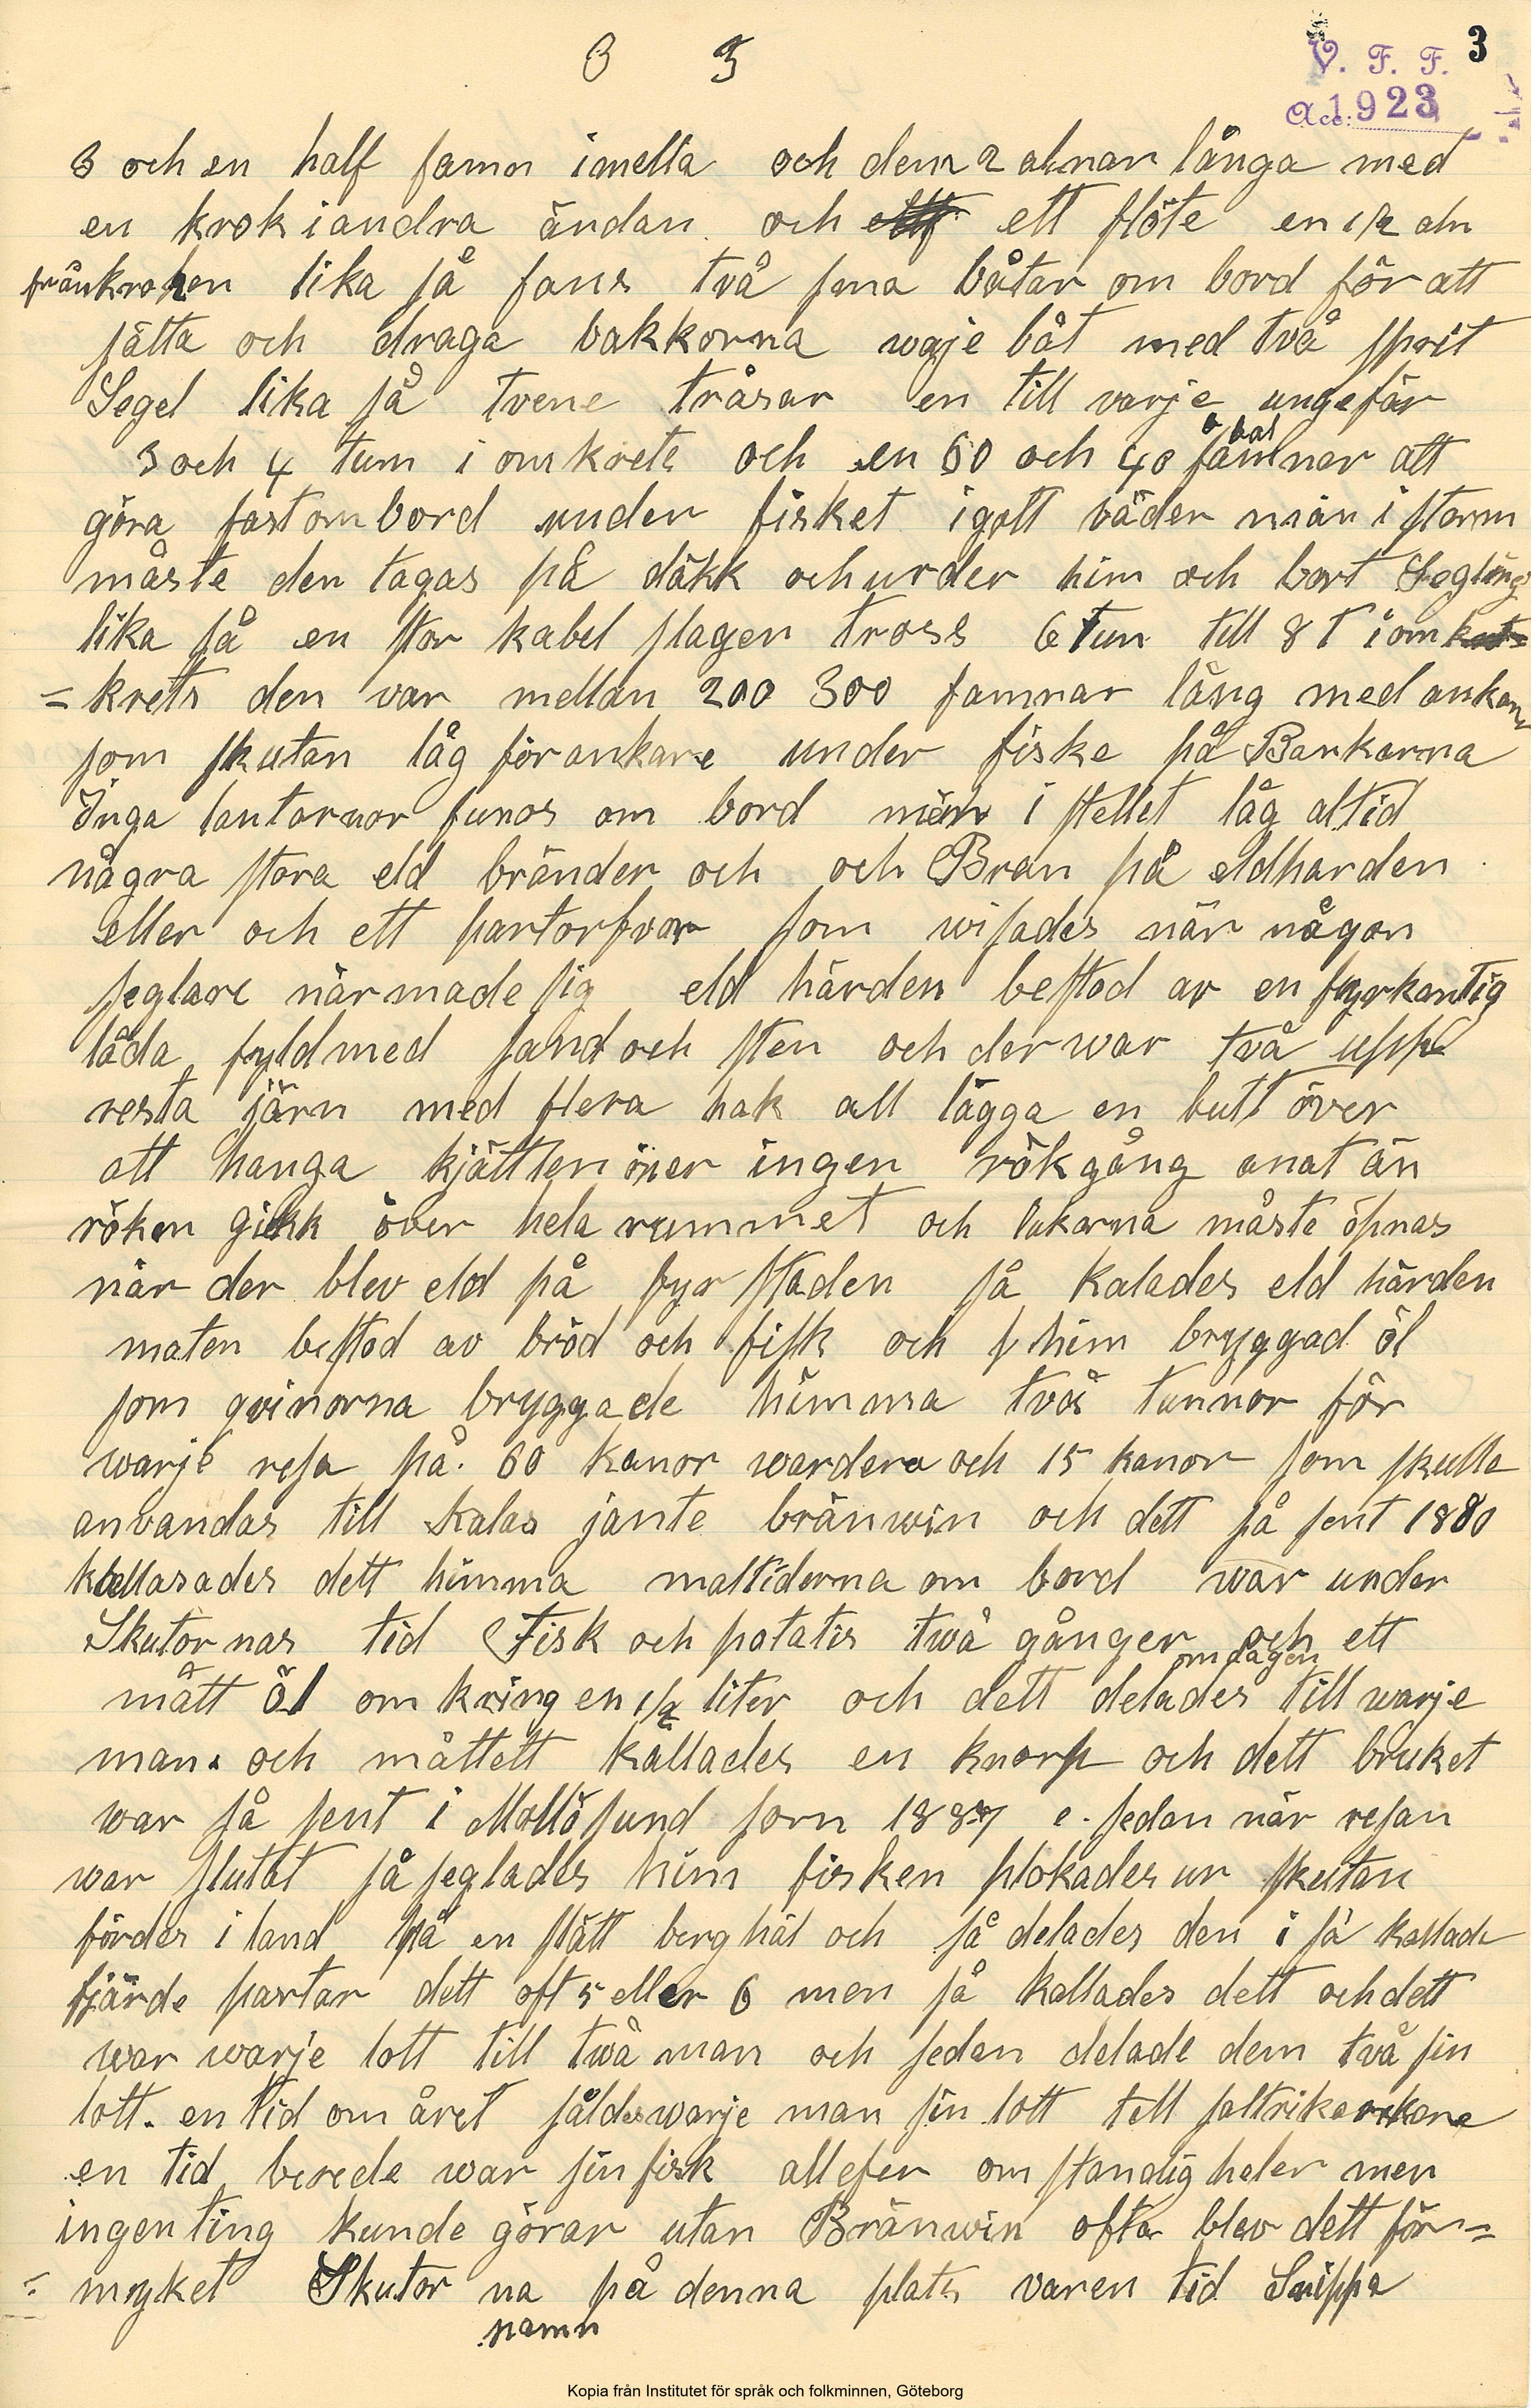 3 3
V. F. F. 3
Acc: 1923
3 och en half famn imella och dem 2 alnar långa med
en krok i andra ändan och ett flöte en 1/2 aln
från kroken lika så fans två sma båtar om bord för att
sätta och draga bakkorna waje båt med två sprit
Segel lika så tvene tråsar en till varje ungefär
3 och 4 tum i omkrets och en 60 och 40 famnar att
göra fast ombord under fisket i gott väder män i storm
måste den tagas på däkk och under him och bort Segling
lika så en stor kabel slagen tross 6 tum till 8 T i om
= krets den var mellan 200 300 famnar lång med ankare
som skutan låg för ankare under fiske på Bankarna
Inga lantarnor funos om bord män i stellet låg altid
några stora eld bränder och och Bran på eldharden
eller och ett som wisades när någon
seglare närmade sig eld härden bestod av en fyrkantig
låda fyld med sand och sten och der war två upp
resta järn med flera hak att lägga en butt över
att hanga kjättlen över ingen rökgång anat än
röken gikk över hela rummet och lukarna måste öpnas
när der blev eld på fyr staden så kalades eld härden
maten bestod av bröd och fisk och him bryggad öl
som qvinorna bryggade himma två tunnor för
warje resa på 60 kanor wardera och 15 kanor som skulle
anvandas till kalas jante bränwin och dett så sent 1880
kallasades dett himma maltiderna om bord war under
Skutornas tid Fisk och potatis twå gånger om dagen och ett
mått öl omkring en 1/2 liter och dett delades till warje
man. och måttett kallades en knorp och dett bruket
war så sent i Mollösund som 1887 e. sedan när resan
war slutat så seglades him fisken plokades ur skutan
fördes i land på en slätt berg häl och så delades den i så kallade
fjärde partar dett oft 5 eller 6 men så kallades dett och dett
war warje lott till twå man och sedan delade dem två sin
lott. en tid om året såldes warje man sin lott till
en tid berede war sin fisk allefer omstandigheter men
ingenting kunde görar utan Bränwin ofta blev dett för=
= myket Skutor na på denna plats varen tid Snippa
namn
Kopia från Institutet för språk och folkminnen, Göteborg